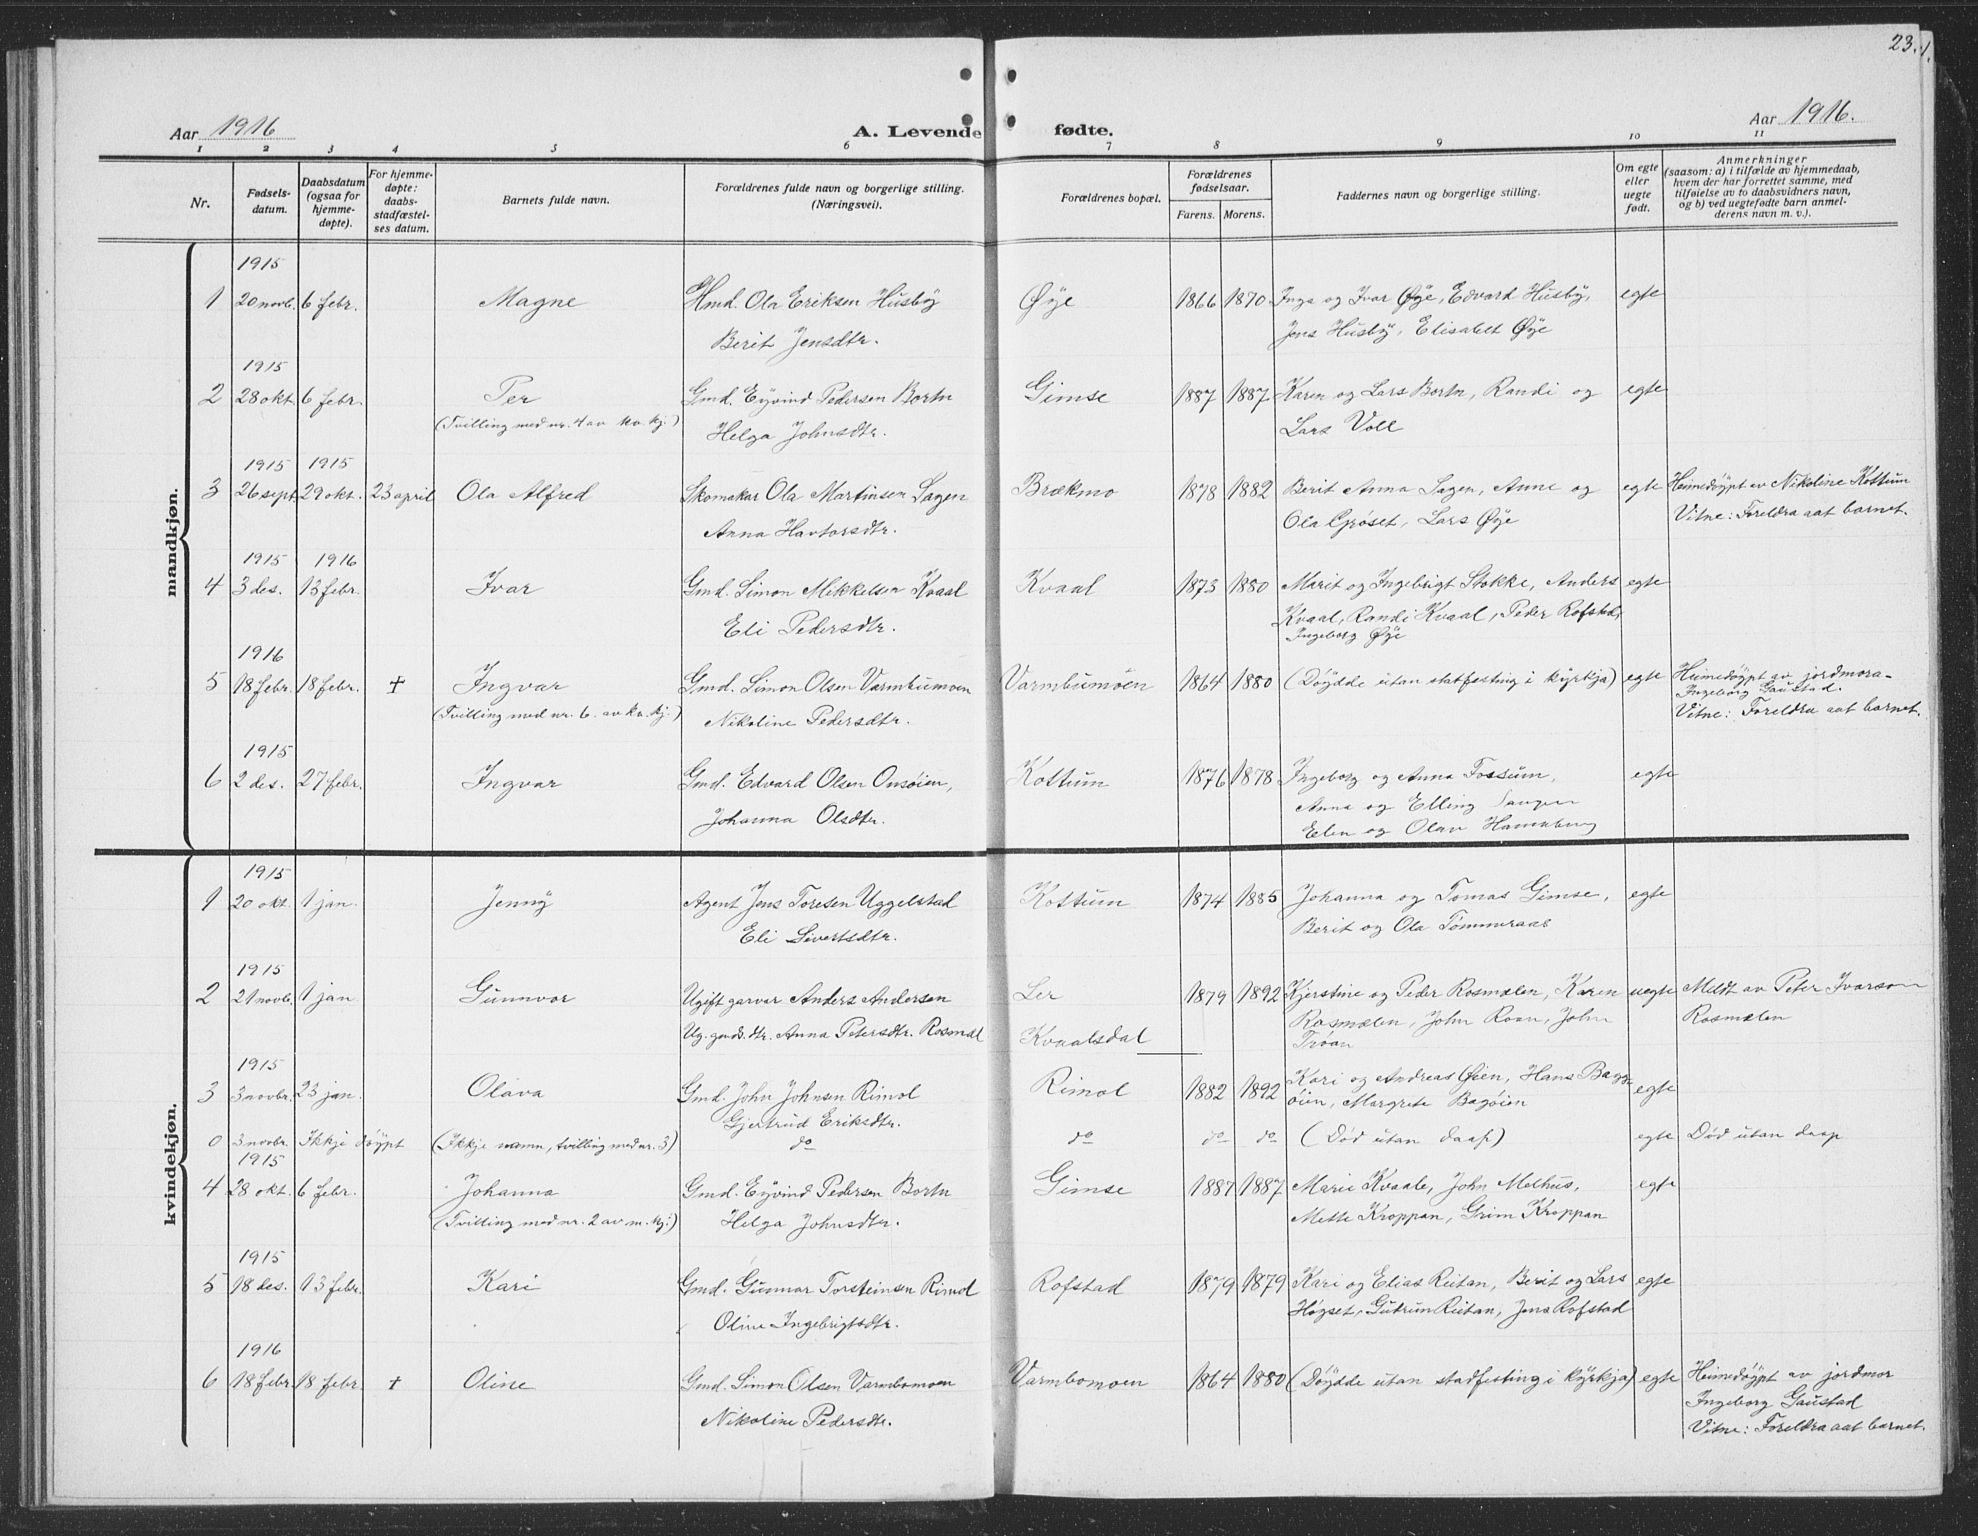 23.
Aar 1916 A. Levende fødte. Aar 1916.
1 2 3 4 5 6 7 8 9 10 11
Nr. Fødselsdatum. Daabsdatum (ogsaa for hjemmedøpte). For hjemmedøpte: daabsstadfæstelses datum. Barnets fulde navn. Forældrenes fulde navn og borgerlige stilling. (Næringsvei). Forældrenes bopæl. Forældrenes fødselsaar. Farens. Morens. Faddernes navn og borgerlige stilling. Om egte eller uegte født. Anmerkninger (saasom: a) i tilfælde av hjemmedaab, hvem der har forrettet samme, med tilføielse av to daabsvidners navn, og b) ved uegtefødte barn anmelderens navn m. v.).
mandkjøn.
1915
1 20 novb. 6 febr. Magne Gmd. Ola Eriksen Husby Øye 1866 1870 Inga og Ivar Øye, Edvard Husby, egte
Berit Jensdtr. Jens Husby, Elisabet Øye
1915
2 28 okt 6 febr. Per Gmd. Eyvind Pedersen Bortn Gimse 1887 1887 Karen og Lars Bortn, Randi og egte
(Tvilling med nr. 4 av kv. kj.) Helga Johnsdtr. Lars Voll
1915 1915
3 26 sept 29 okt. 23 april Ola Alfred Skomakar Ola Martinsen Sagen Brækmo 1878 1882 Berit Anna Sagen, Anne og egte Heimedøypt av Nikoline Kottum
Anna Havtorsdtr. Ola Grøset, Lars Øye Vitne: Foreldra aat barnet.
1915 1916
4 3 des. 13 febr. Ivar Gmd. Simon Mikkelsen Kvaal Kvaal 1873 1880 Marit og Ingebrigt Stokke, Anders egte
Eli Pedersdtr. Kvaal, Randi Kvaal, Peder Rofstad,
Ingeborg Øye
1916
5 18 febr. 18 febr. † Ingvar Gmd. Simon Olsen Varmbumoen Varmbumoen 1864 1880 (Døydde utan statfesting i kyrkja) egte Heimedøypt av jordmora
Ingeborg Gaustad.
(Tvilling med nr. 6. av kv. kj.) Nikoline Pedersdtr. Vitne: Foreldra aat barnet.
1915
6 2 des. 27 febr. Ingvar Gmd. Edvard Olsen Onsøien, Kottum 1876 1878 Ingeborg og Anna Fossum, egte
Johanna Olsdtr. Anna og Elling
Elen og Olav
kvindekjøn.
1915
1 20 okt. 1 jan. Jenny Agent Jens Toresen Uggelstad Kottum 1874 1885 Johanna og Tomas Gimse, egte
Eli Sivertsdtr. Berit og Ola Tømmeraas
1915
2 21 novb. 1 jan. Gunnvor Ugift garvar Anders Andersen Ler 1879 1892 Kjerstine og Peder Rosmælen, Karen uegte Meldt av Peter Ivarson
Ug. gmds. dtr. Anna Petersdtr. Rosmæl Kvaalsdal Rosmælen, John Roan, John Rosmælen
Trøan
1915
3 3 novbr. 23 jan. Olava Gmd. John Johnsen Rimol Rimol 1882 1892 Kari og Andreas Øien, Hans Bagøien, Margrete Bagøien egte
Gjertrud Eriksdtr.
0 3 novbr. Ikkje døypt (Ikkje namn, tvilling med nr. 3) do do do do (Død utan daap) egte Død utan daap
1915
4 28 okt. 6 febr. Johanna Gmd. Eyvind Pedersen Bortn Gimse 1887 1887 Marie Kvaale, John Melhus, egte
(Tvilling med nr. 2 av m. kj.) Helga Johnsdtr. Mette Kroppan, Grim Kroppan
1915
5 18 des. 13 febr. Kari Gmd. Gunnar Torsteinsen Rimol Rofstad 1879 1879 Kari og Elias Reitan, Berit og Lars egte
Oline Ingebrigtsdtr. Høgset, Gutrun Reitan, Jens Rofstad
1916
6 18 febr. 18 febr. † Oline Gmd. Simon Olsen Varmbomoen Varmbomoen 1864 1880 (Døydde utan stadfesting i kyrkja) egte Heimedøypt av jordmor
Ingeborg Gaustad
Nikoline Pedersdtr. Vitne: Foreldra aat barnet.